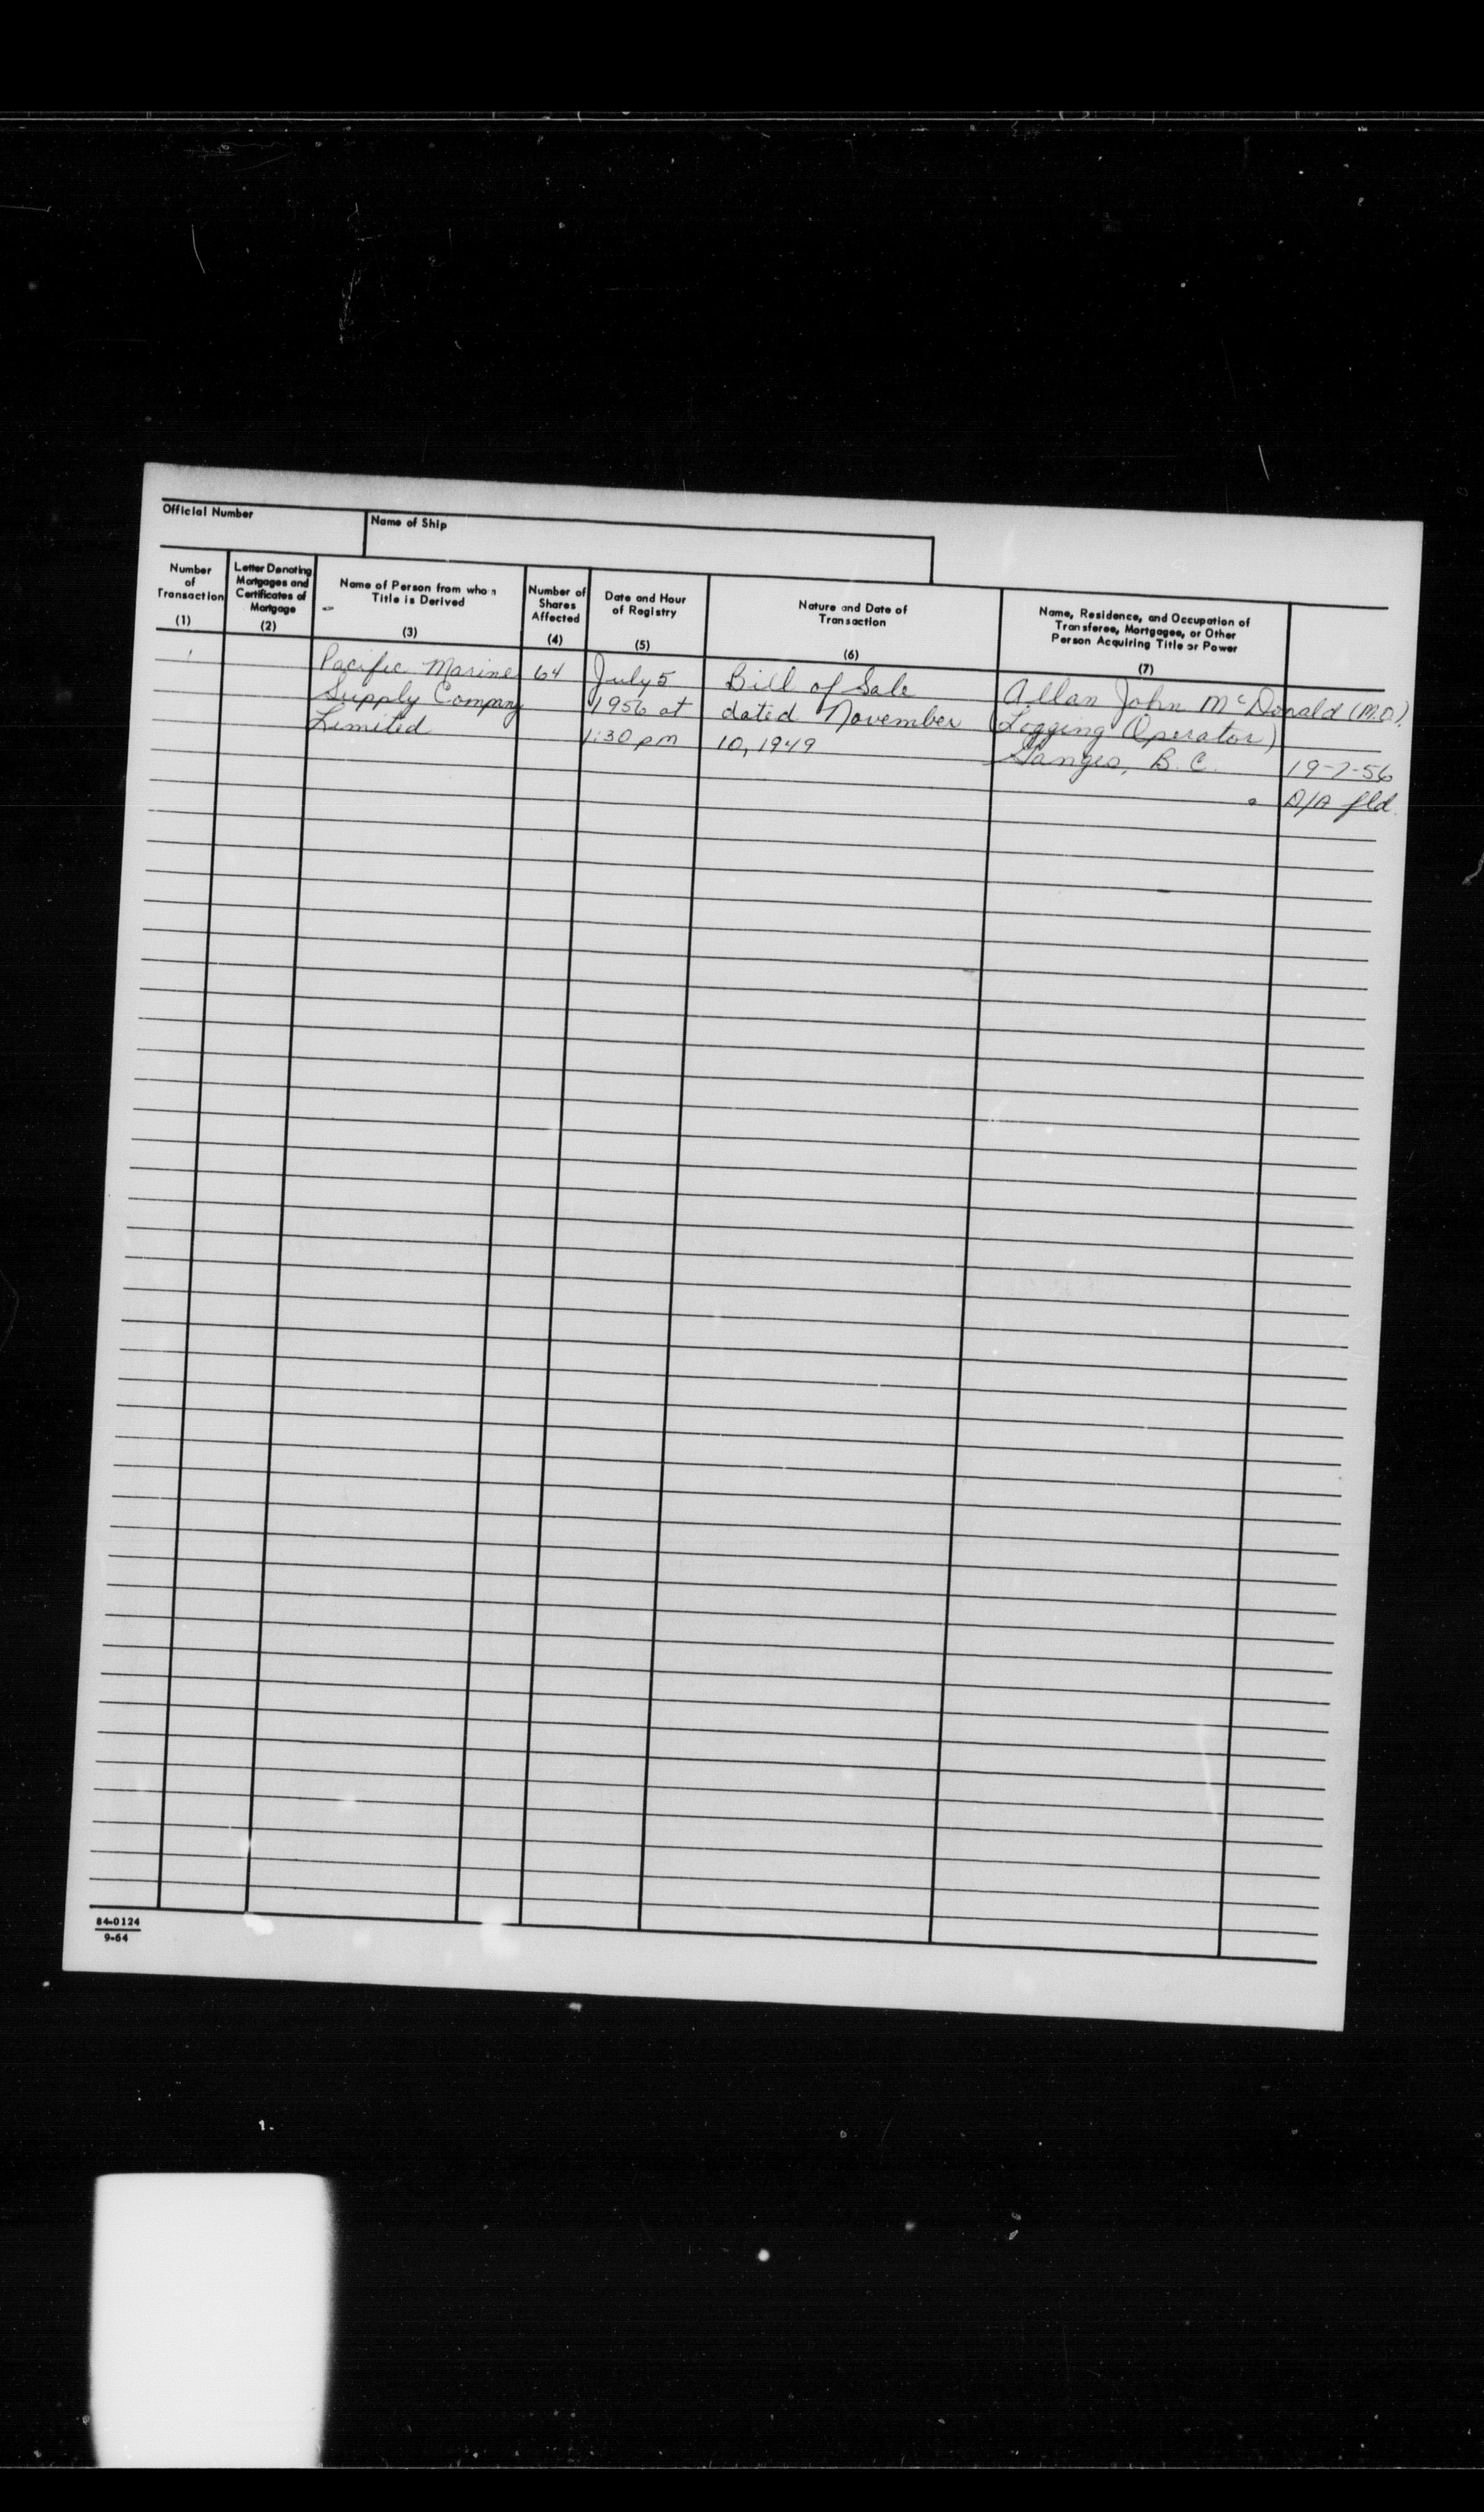 Official Number
Name of Ship
Number of Transaction (1)
Letter Denoting Mortgages and Certificates of Mortgage (2)
Name of Person from whom Title is Derived (3)
Number of Shares Affected (4)
Date and Hour of Registry (5)
Nature and Date of Transaction (6)
Name, Residence, and Occupation of Transferee, Mortgagee, or Other Person Acquiring Title or Power (7)
1 Pacific Marine 64 July 5 Bill of Sale Allan John McDonald (M.O.)
Supply Company 1956 at dated November (Logging Operator)
Limited 1:30 pm 10, 1949 Ganges, B.C. 19-7-56
D/A fld.
84-0124
9-64
1.